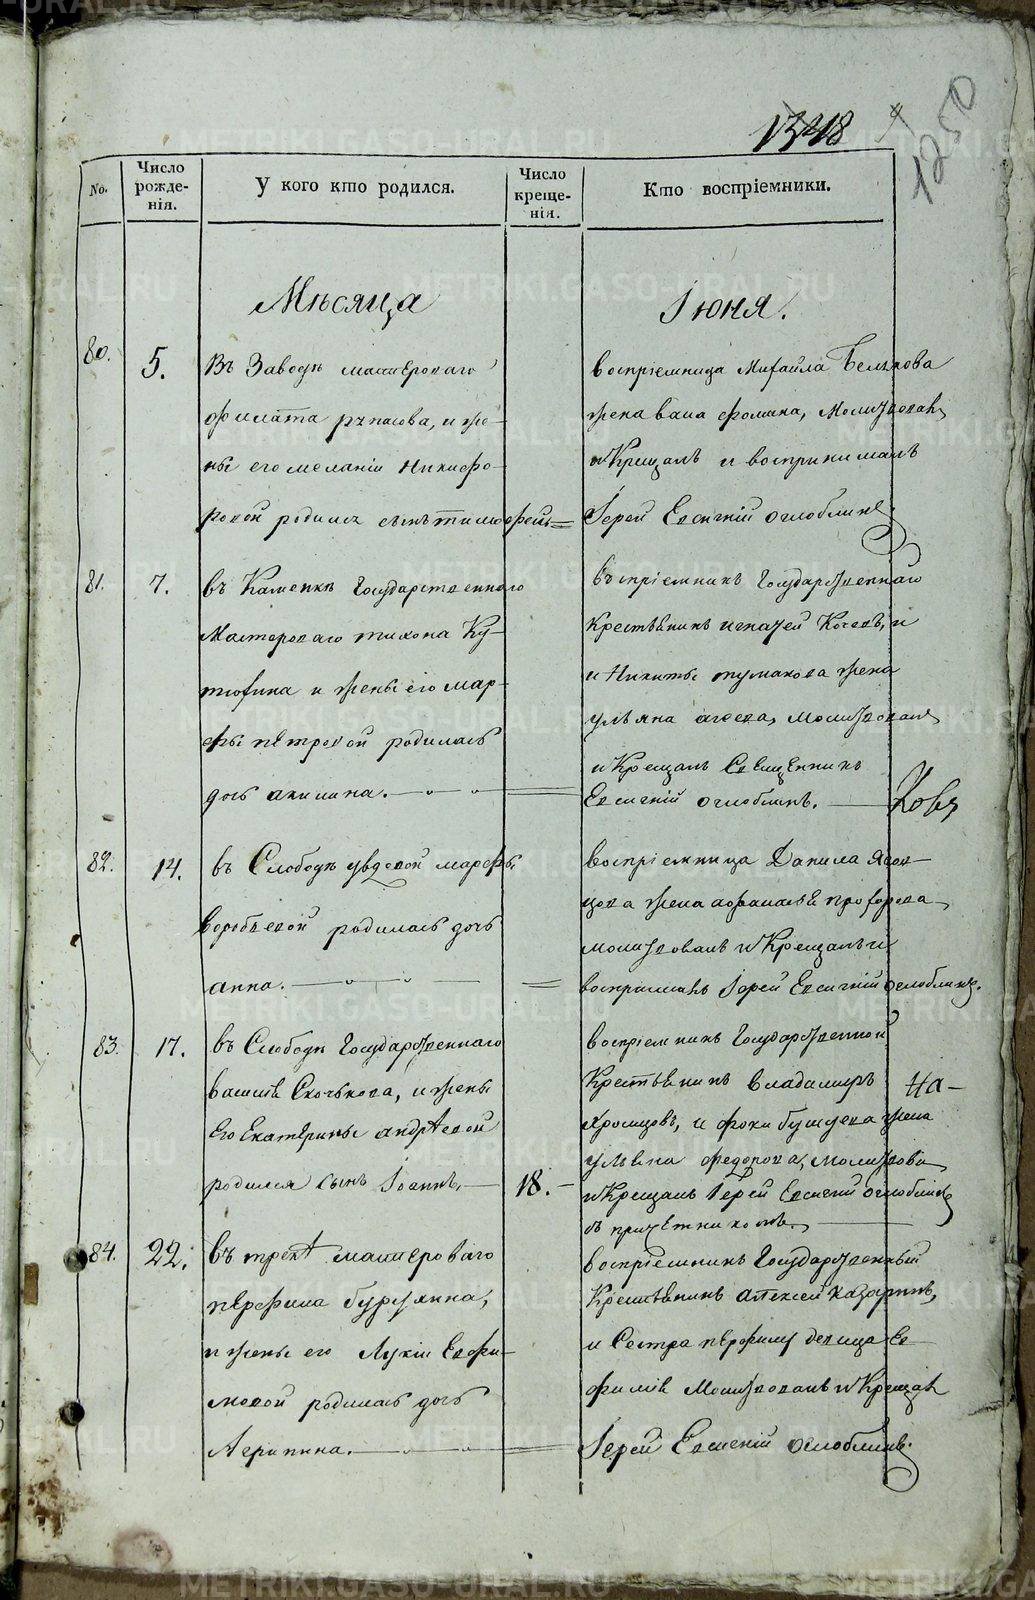 1318
1250
No.
Число
рожде-
нія.
У кого кто родился.
Число
креще-
нія.
Кто воспріемники.
Мѣсяца
Іюня.
80.
5.
Въ Заводѣ мастероваго
Филата, и же-
ны его меланіи Никифо-
ровой родился сынъ тимофей =
воспріемница Михайла Белыкова
жена Фомина, Молитвовалъ
и Крещалъ и воспринималъ
Іерей Евгеній оглоблинъ
81.
7.
въ Каменкѣ Государственнаго
Мастероваго тихона Ку-
тюхина и жены его мар-
фы петровой родилась
дочь акилина.
воспріемникъ Государственнаго
Крестьянинъ Котовъ, и
и Никиты тумакова жена
ульяна, молитвовалъ
и Крещалъ Священникъ
Евгеній оглоблинъ.
82.
14.
въ Слободѣ увдовой марфы
воробьевой родилась дочь
анна.
воспріемница Данила
жена прохорова
молитвовалъ и Крещалъ и
воспринималъ Іерей Евгеній оглоблинъ.
83.
17.
въ Слободѣ Государственнаго
Скочькова, и жены
Его Екатерины андреевой
родился сынъ Іоаннъ.
18.
воспріемникъ Государственной
Крестьянинъ владимиръ
Хромцовъ, и фоки жена
ульяна федорова, молитвова
на-
и Крещалъ Іерей Евгеній оглоблинъ
съ причетникомъ.
84.
22.
въ мастероваго
перфила,
и жены его Лукіи Евфи-
мовой родилась дочь
Агрипина.
воспріемникъ Государственный
Крестьянинъ алексей казаринъ,
и Сестра перфилу девица Ев-
фимія Молитвовалъ и Крещалъ
Іерей Евгеній оглоблинъ.
METRIKI.GASO-URAL.RU